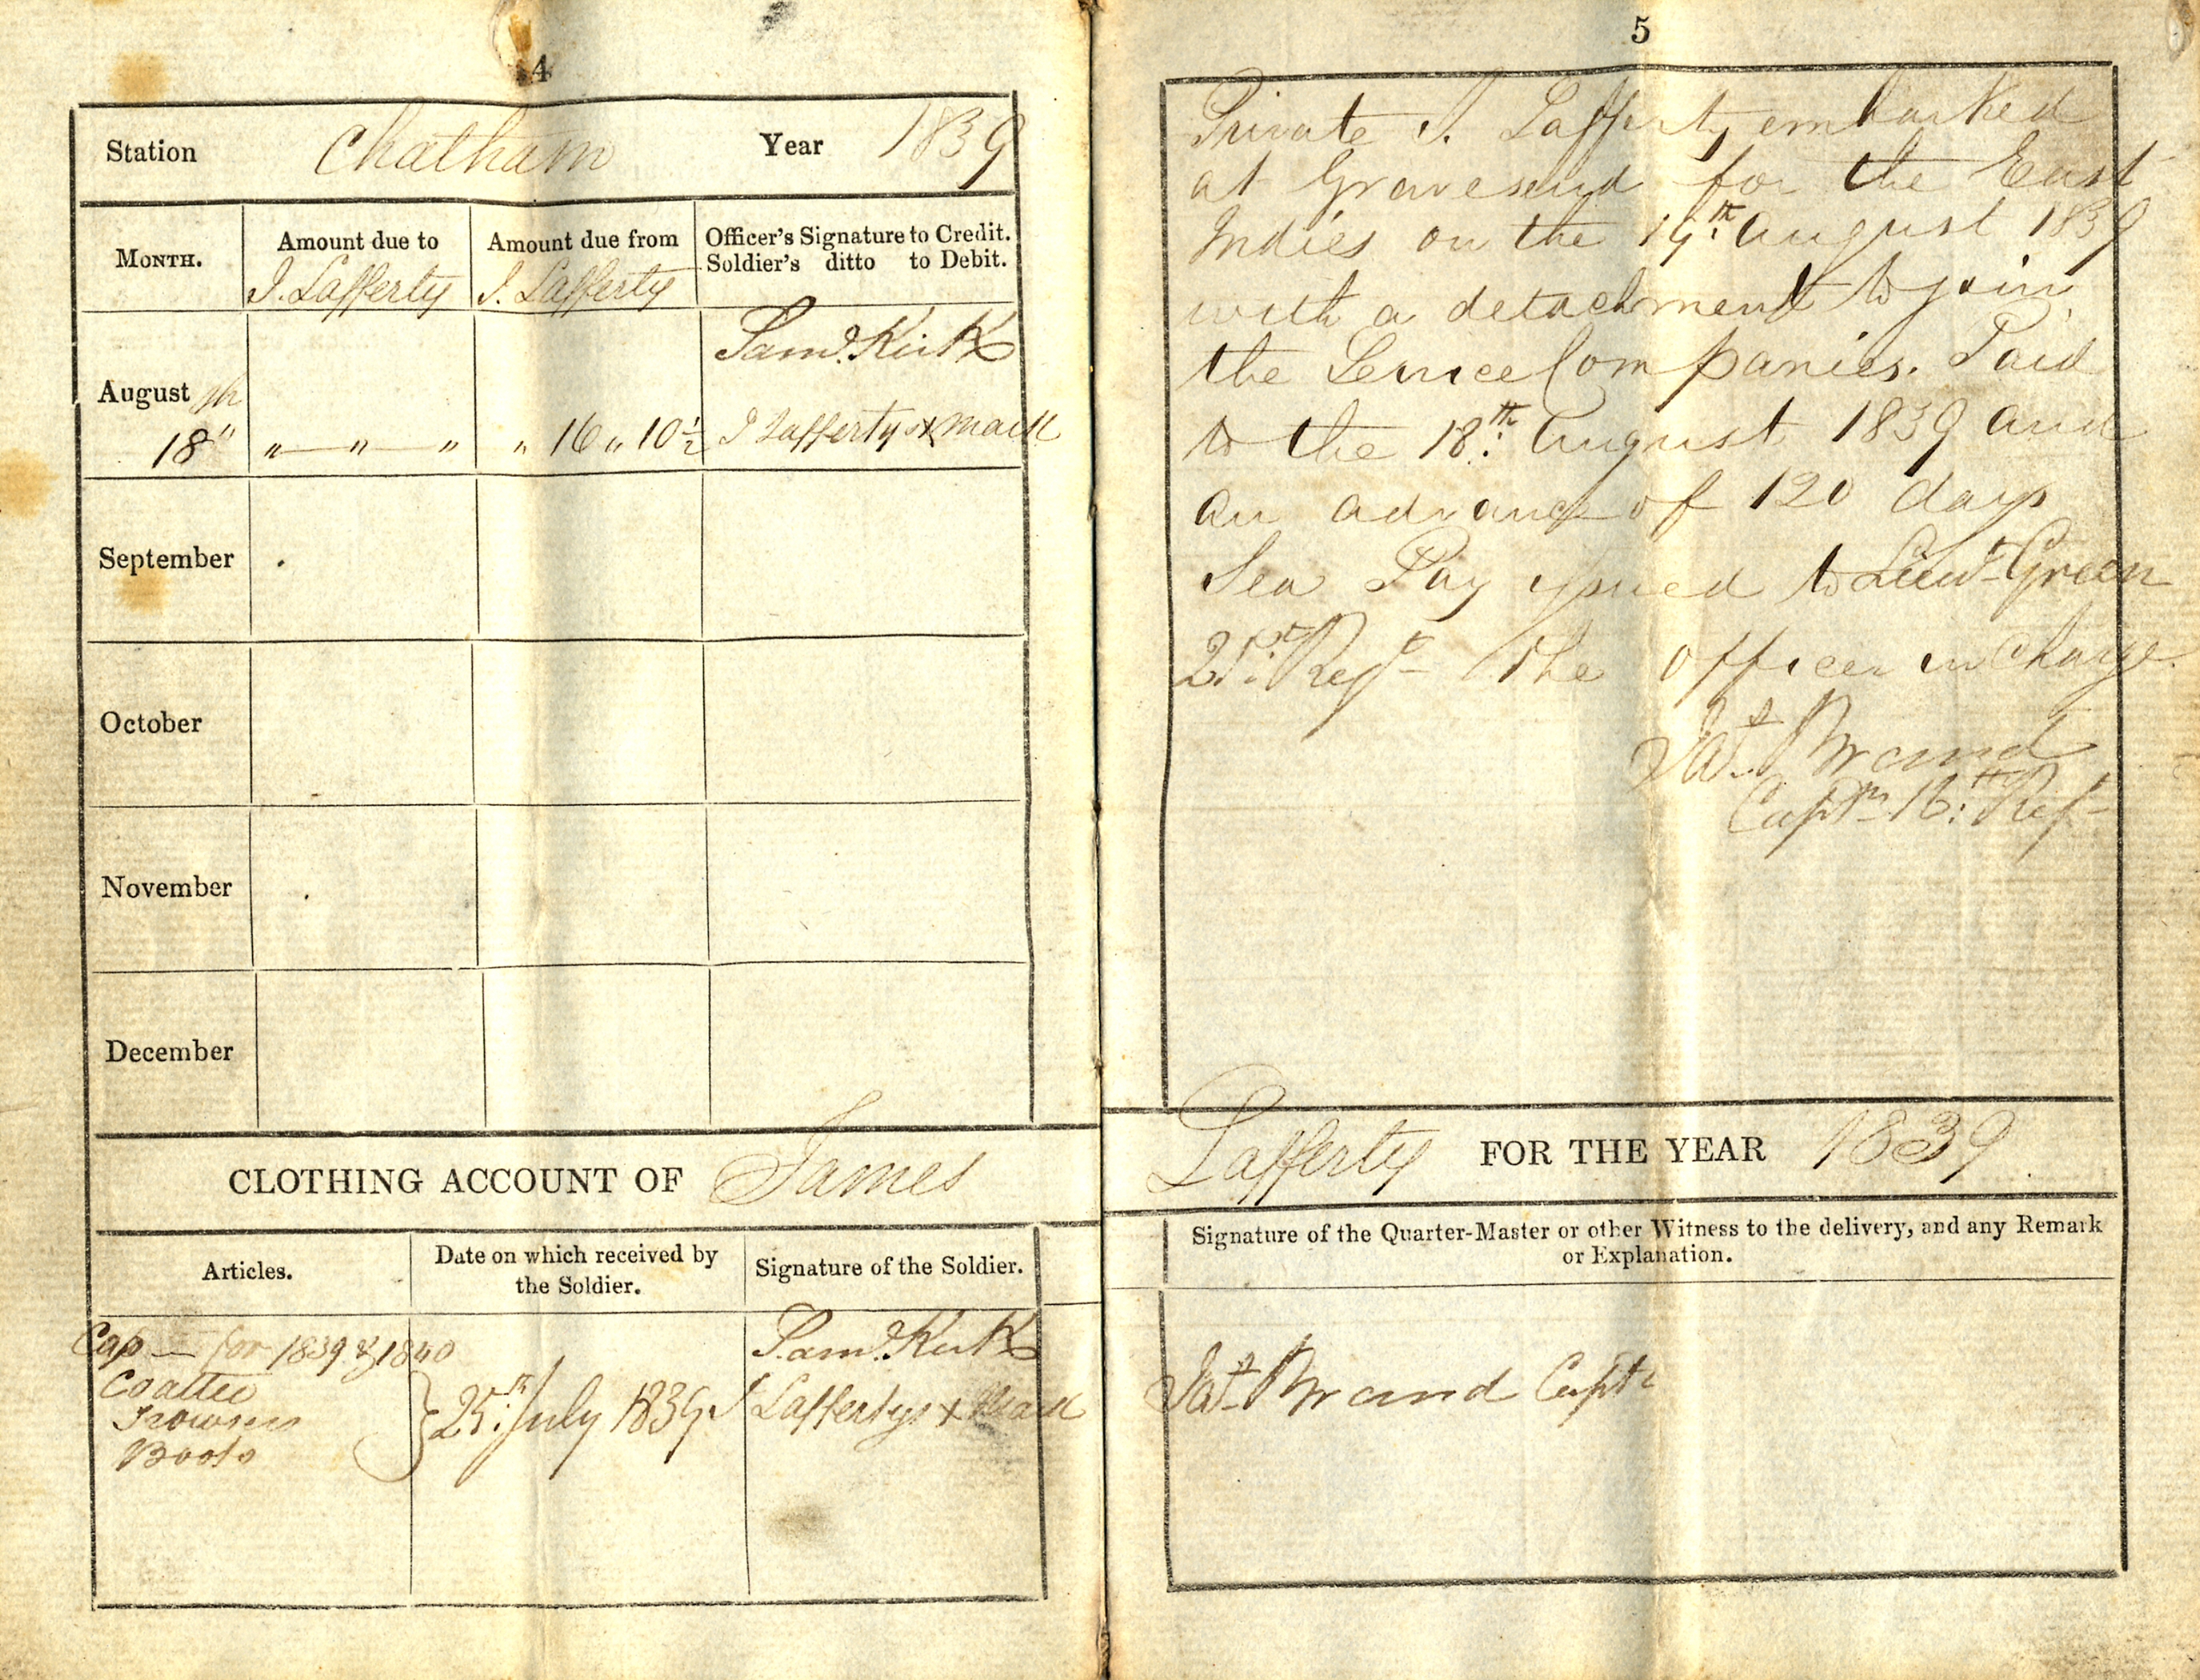 4
Station Chatham Year 1839
MONTH. Amount due to J. Lafferty Amount due from J. Lafferty Officer's Signature to Credit. Soldier's ditto to Debit.
Saml. Kirk
August
18th " — " — " " 16 " 10 1/2 J Laffertys x mark
September
October
November
December
CLOTHING ACCOUNT OF James
Articles. Date on which received by the Soldier. Signature of the Soldier.
Cap — for 1839 & 1840 Saml. Kirk
Coattee
Trowsers 25th July 1839 J Laffertys x Mark
Boots
5
Private J. Lafferty embarked
at Gravesend for the East
Indies on the 19th August 1839
with a detachment to join
the Service Companies. Paid
to the 18th August 1839 and
an advance of 120 days
Sea Pay issued to Lieut Green
21st Regt the officer in Charge.
Brand
Captn 16th Regt
Lafferty FOR THE YEAR 1839
Signature of the Quarter-Master or other Witness to the delivery, and any Remark
or Explanation.
Brand Captn